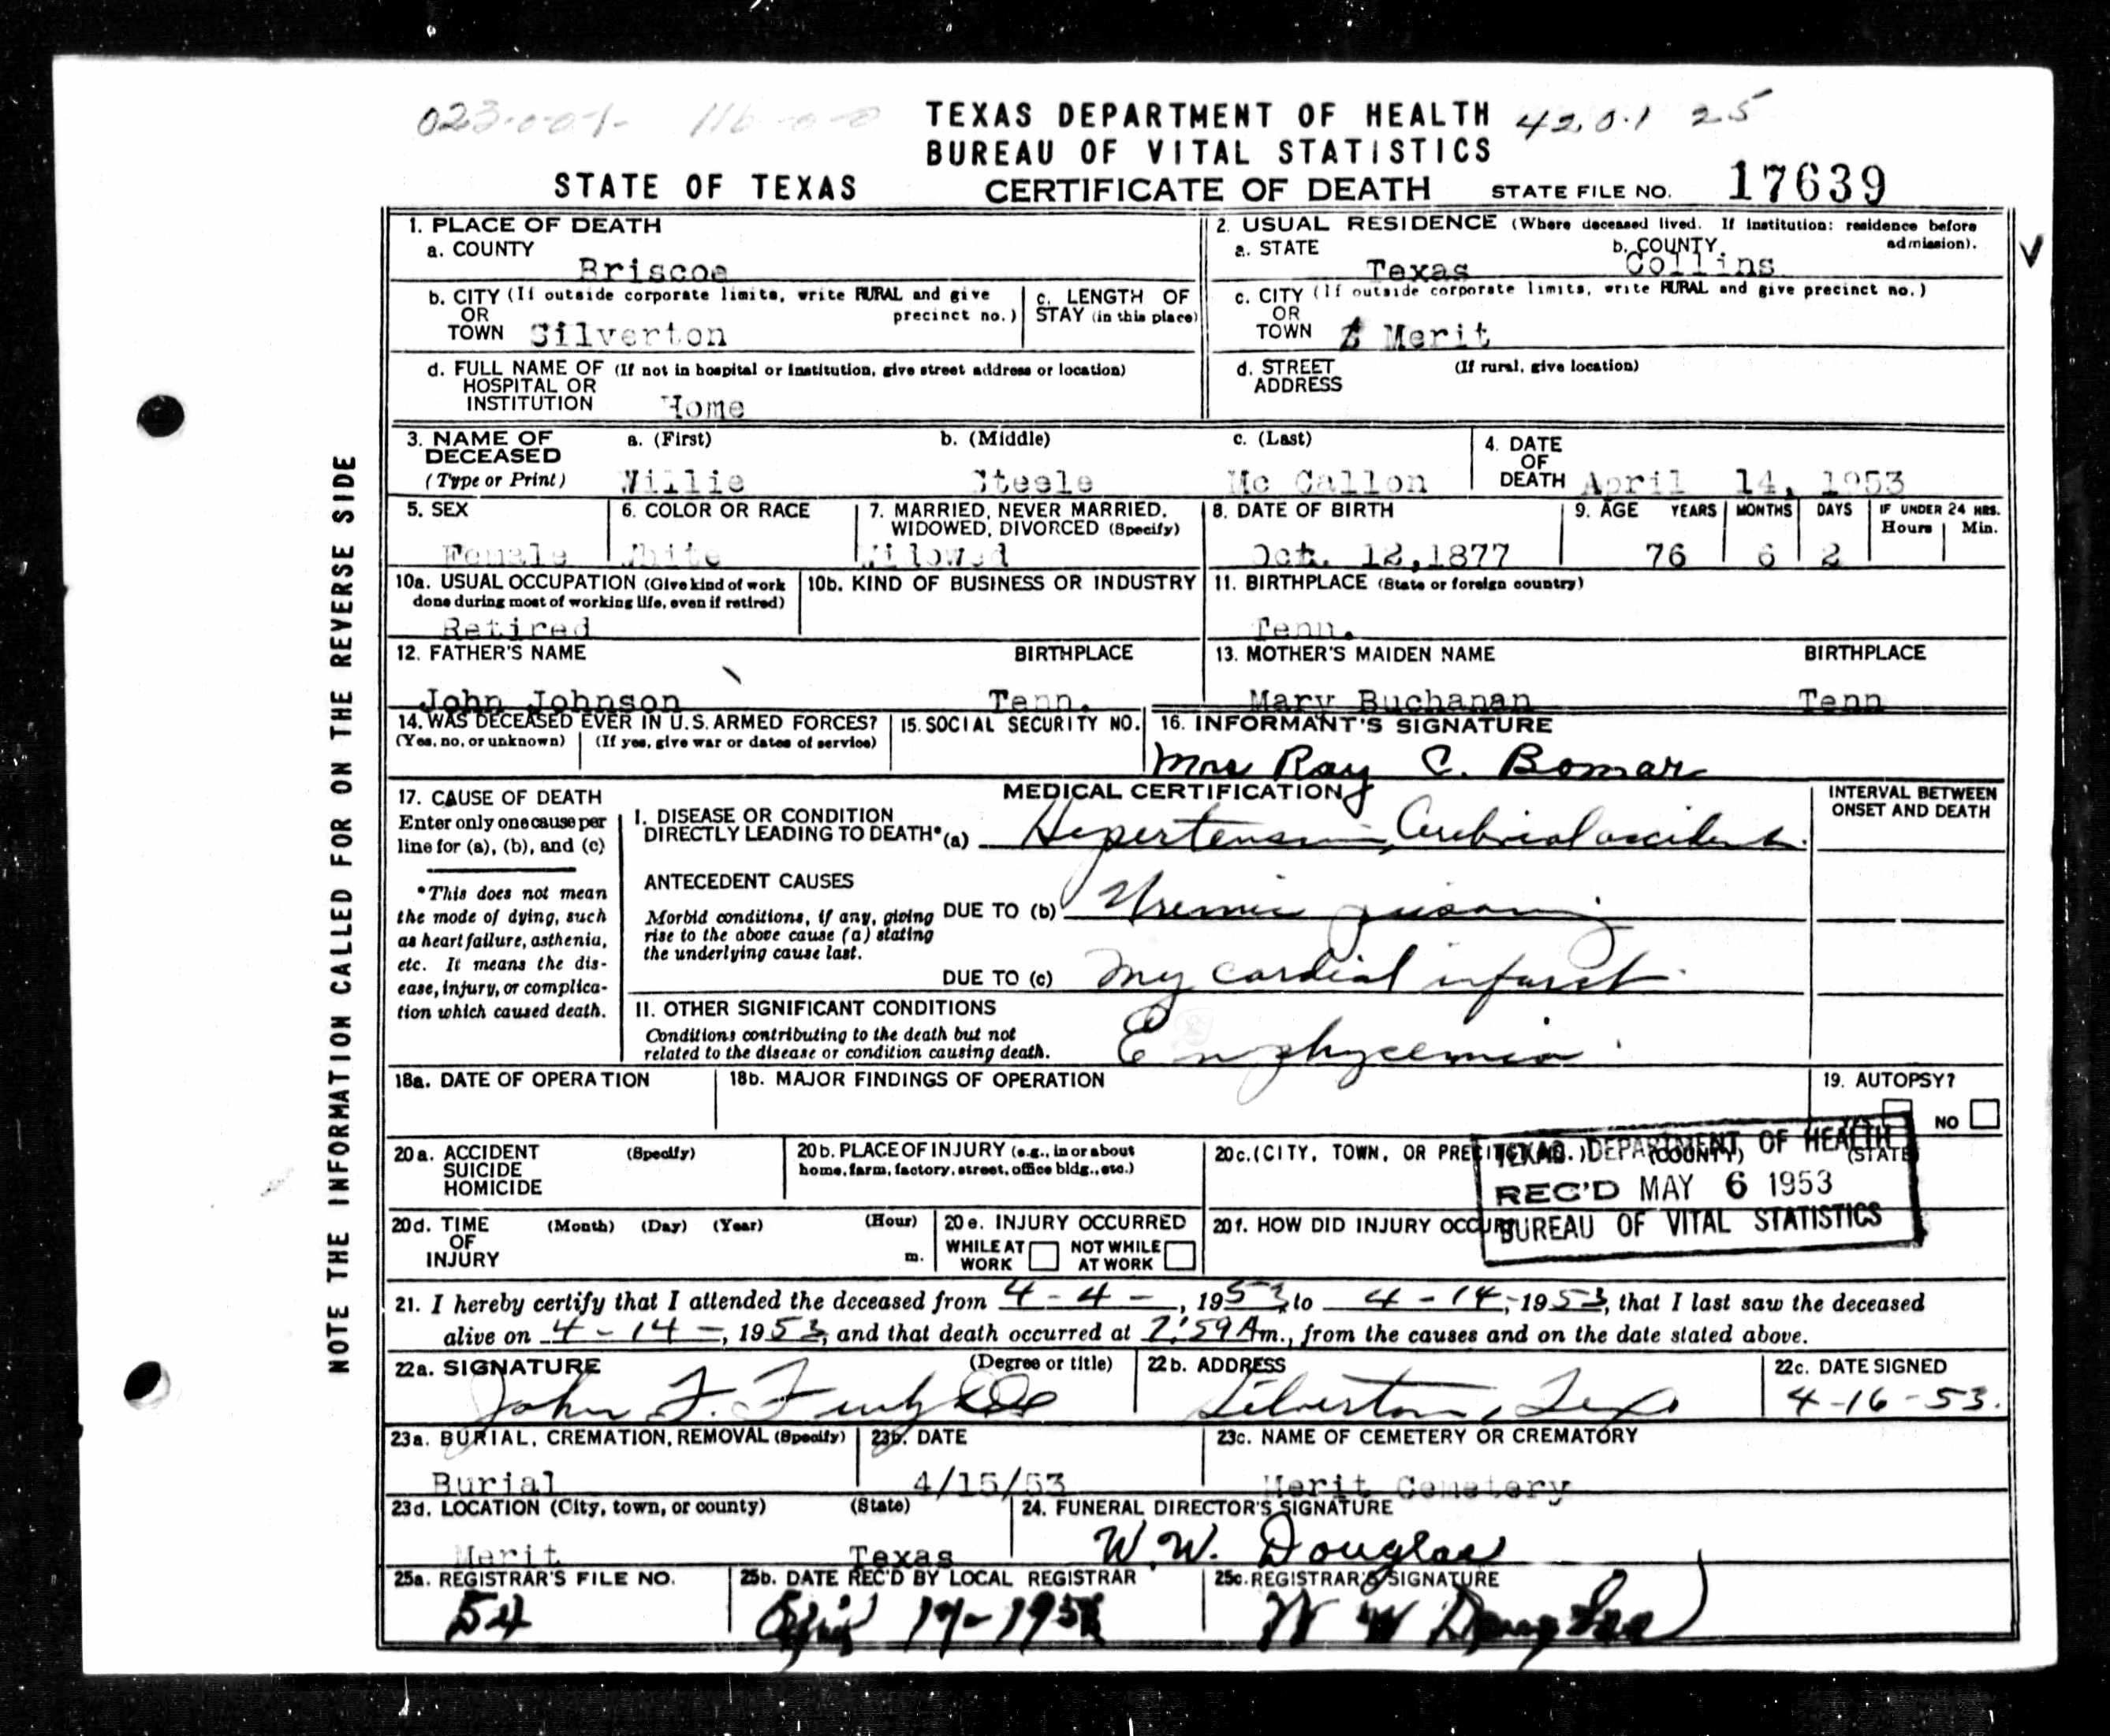 023-0-01- 116-0-0
TEXAS DEPARTMENT OF HEALTH 420.1 25
BUREAU OF VITAL STATISTICS
STATE OF TEXAS CERTIFICATE OF DEATH STATE FILE NO. 17639
NOTE THE INFORMATION CALLED FOR ON THE REVERSE SIDE
1. PLACE OF DEATH
a. COUNTY
Briscoe
2. USUAL RESIDENCE (Where deceased lived. If institution: residence before admission).
a. STATE b. COUNTY
Texas Collins
b. CITY (If outside corporate limits, write RURAL and give precinct no.)
OR
TOWN Silverton
c. LENGTH OF
STAY (in this place)
c. CITY (If outside corporate limits, write RURAL and give precinct no.)
OR
TOWN Merit
d. FULL NAME OF (If not in hospital or institution, give street address or location)
HOSPITAL OR
INSTITUTION Home
d. STREET (If rural, give location)
ADDRESS
3. NAME OF DECEASED a. (First) b. (Middle) c. (Last)
(Type or Print) Willie Steele Mc Callon
4. DATE
OF
DEATH April 14, 1953
5. SEX
Female
6. COLOR OR RACE
White
7. MARRIED, NEVER MARRIED,
WIDOWED, DIVORCED (Specify)
Widowed
8. DATE OF BIRTH
Oct. 12,1877
9. AGE YEARS MONTHS DAYS IF UNDER 24 HRS.
Hours Min.
76 6 2
10a. USUAL OCCUPATION (Give kind of work
done during most of working life, even if retired)
Retired
10b. KIND OF BUSINESS OR INDUSTRY
11. BIRTHPLACE (State or foreign country)
Tenn.
12. FATHER'S NAME BIRTHPLACE
John Johnson Tenn.
13. MOTHER'S MAIDEN NAME BIRTHPLACE
Mary Buchanan Tenn
14. WAS DECEASED EVER IN U.S. ARMED FORCES?
(Yes, no, or unknown) (If yes, give war or dates of service)
15. SOCIAL SECURITY NO.
16. INFORMANT'S SIGNATURE
Mrs Ray C. Bomar
17. CAUSE OF DEATH
Enter only one cause per
line for (a), (b), and (c)
*This does not mean
the mode of dying, such
as heart failure, asthenia,
etc. It means the dis-
ease, injury, or complica-
tion which caused death.
MEDICAL CERTIFICATION
INTERVAL BETWEEN
ONSET AND DEATH
I. DISEASE OR CONDITION
DIRECTLY LEADING TO DEATH* (a) Hypertension, Cerebrial accident
ANTECEDENT CAUSES
Morbid conditions, if any, giving
rise to the above cause (a) stating
the underlying cause last.
DUE TO (b) Uremic
DUE TO (c) My cardial infarct
II. OTHER SIGNIFICANT CONDITIONS
Conditions contributing to the death but not
related to the disease or condition causing death.
Emphycemia
18a. DATE OF OPERATION
18b. MAJOR FINDINGS OF OPERATION
19. AUTOPSY?
YES NO
20a. ACCIDENT (Specify)
SUICIDE
HOMICIDE
20b. PLACE OF INJURY (e.g., in or about
home, farm, factory, street, office bldg., etc.)
20c. (CITY, TOWN, OR PRECINCT NO.) (COUNTY) (STATE)
TEXAS DEPARTMENT OF HEALTH
REC'D MAY 6 1953
BUREAU OF VITAL STATISTICS
20d. TIME (Month) (Day) (Year) (Hour)
OF
INJURY m.
20e. INJURY OCCURRED
WHILE AT NOT WHILE
WORK AT WORK
20f. HOW DID INJURY OCCUR?
21. I hereby certify that I attended the deceased from 4-4-, 1953, to 4-14, 1953, that I last saw the deceased
alive on 4-14-, 1953, and that death occurred at 7:59 A m., from the causes and on the date stated above.
22a. SIGNATURE (Degree or title)
John F.
22b. ADDRESS
Silverton, Tex
22c. DATE SIGNED
4-16-53.
23a. BURIAL, CREMATION, REMOVAL (Specify)
Burial
23b. DATE
4/15/53
23c. NAME OF CEMETERY OR CREMATORY
Merit Cemetery
23d. LOCATION (City, town, or county) (State)
Merit Texas
24. FUNERAL DIRECTOR'S SIGNATURE
W.W. Douglas
25a. REGISTRAR'S FILE NO.
54
25b. DATE REC'D BY LOCAL REGISTRAR
April 17-1953
25c. REGISTRAR'S SIGNATURE
W W Douglas